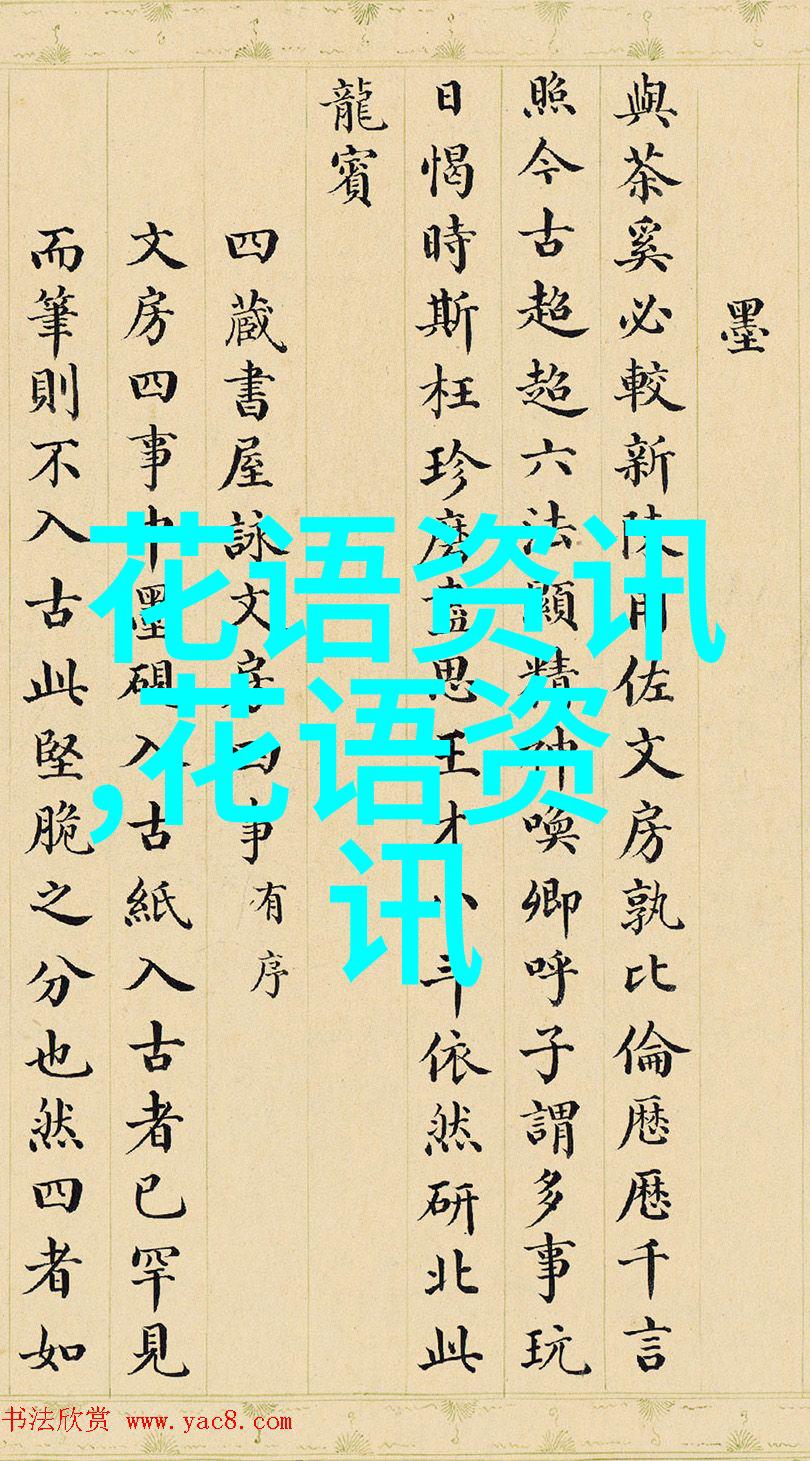 墨
與茶奚必較新陳用佐文房孰比倫厯厯千言
照今古超超六法顯精神喚卿呼子謂多事玩
日愒時斯枉珍磨盡思王才八斗依然研北此
龍賓
四蔵書屋詠文房四事有序
文房四事中墨硯入古紙入古者已罕見
而筆則不入古此堅脆之分也然四者如
花语资讯
,花语资
讯
书法欣赏 www.yac8.com